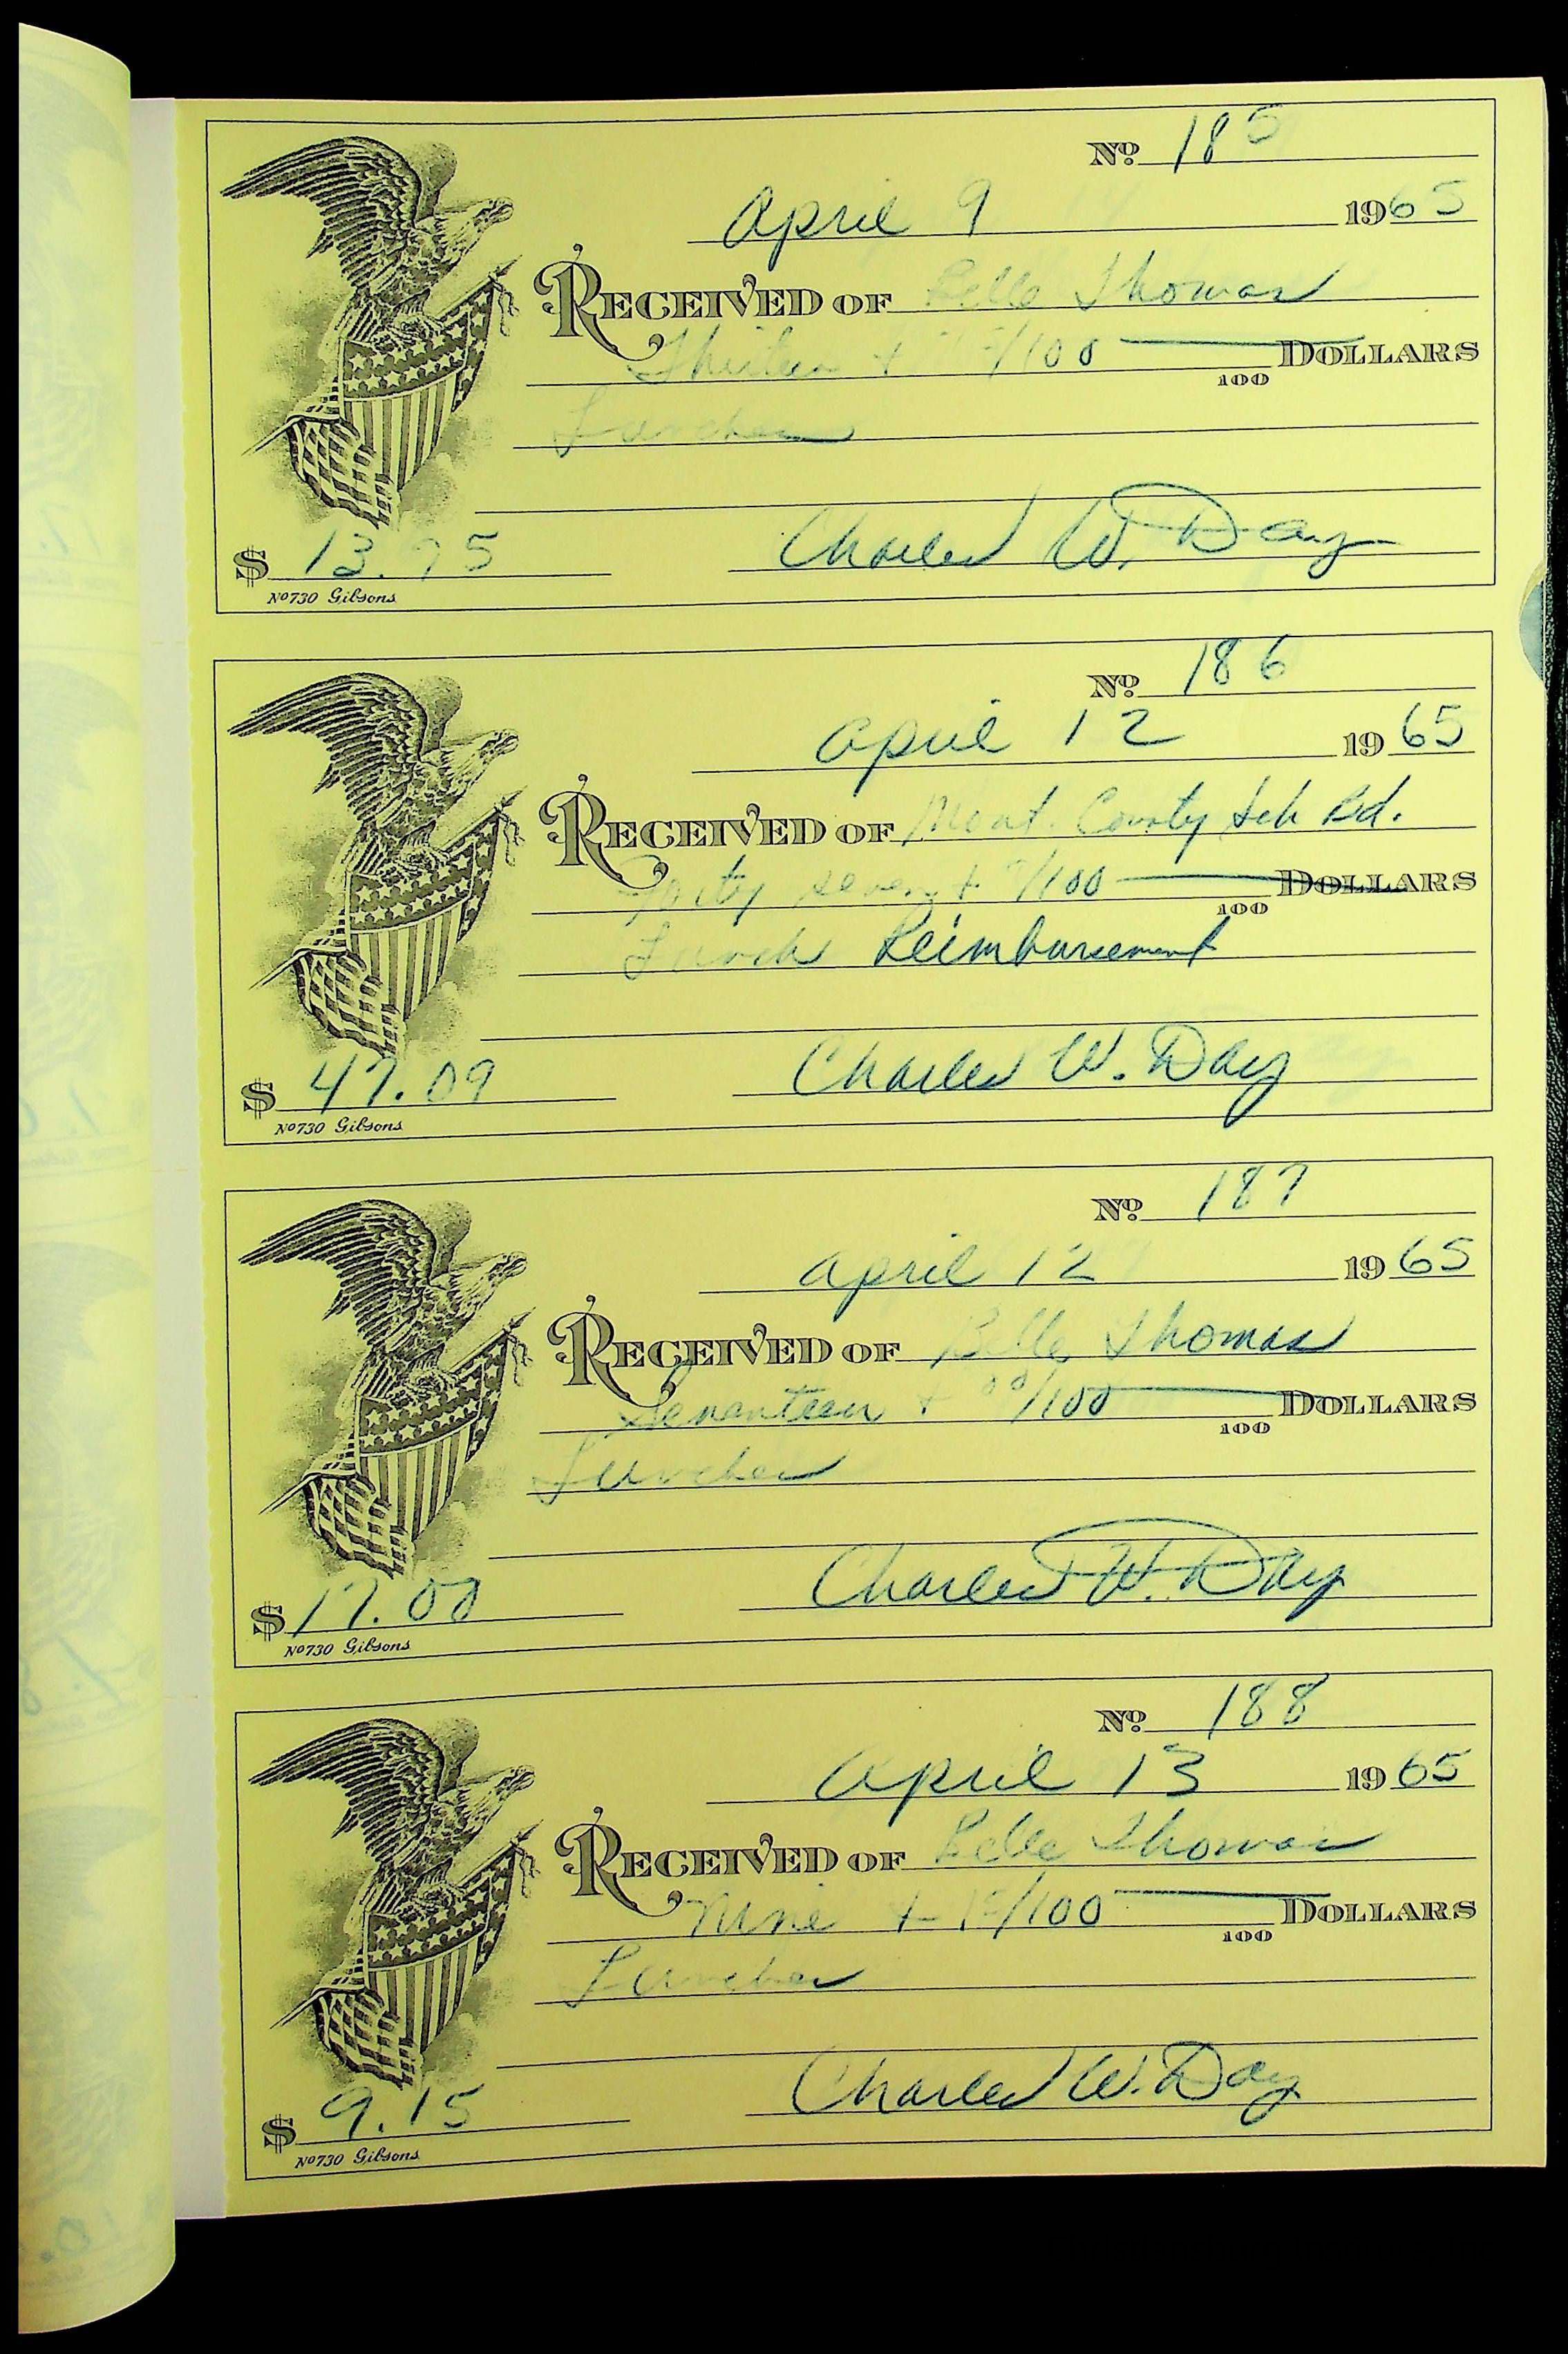 No. 185
April 9 1965
RECEIVED OF Belle Thomas
Thirteen + /100 DOLLARS
100
Lunches
Charles W. Day
$ 13.75
No 730 Gibsons
No. 186
April 12 1965
RECEIVED OF Mont. County Sch Bd.
Forty seven + 9/100 DOLLARS
100
Lunch Reimbursement
Charles W. Day
$ 47.09
No 730 Gibsons
No. 187
April 12 1965
RECEIVED OF Belle Thomas
Seventeen + 00/100 DOLLARS
100
Lunches
Charles W. Day
$ 17.00
No 730 Gibsons
No. 188
April 13 1965
RECEIVED OF Belle Thomas
Nine + 15/100 DOLLARS
100
Lunches
Charles W. Day
$ 9.15
No 730 Gibsons